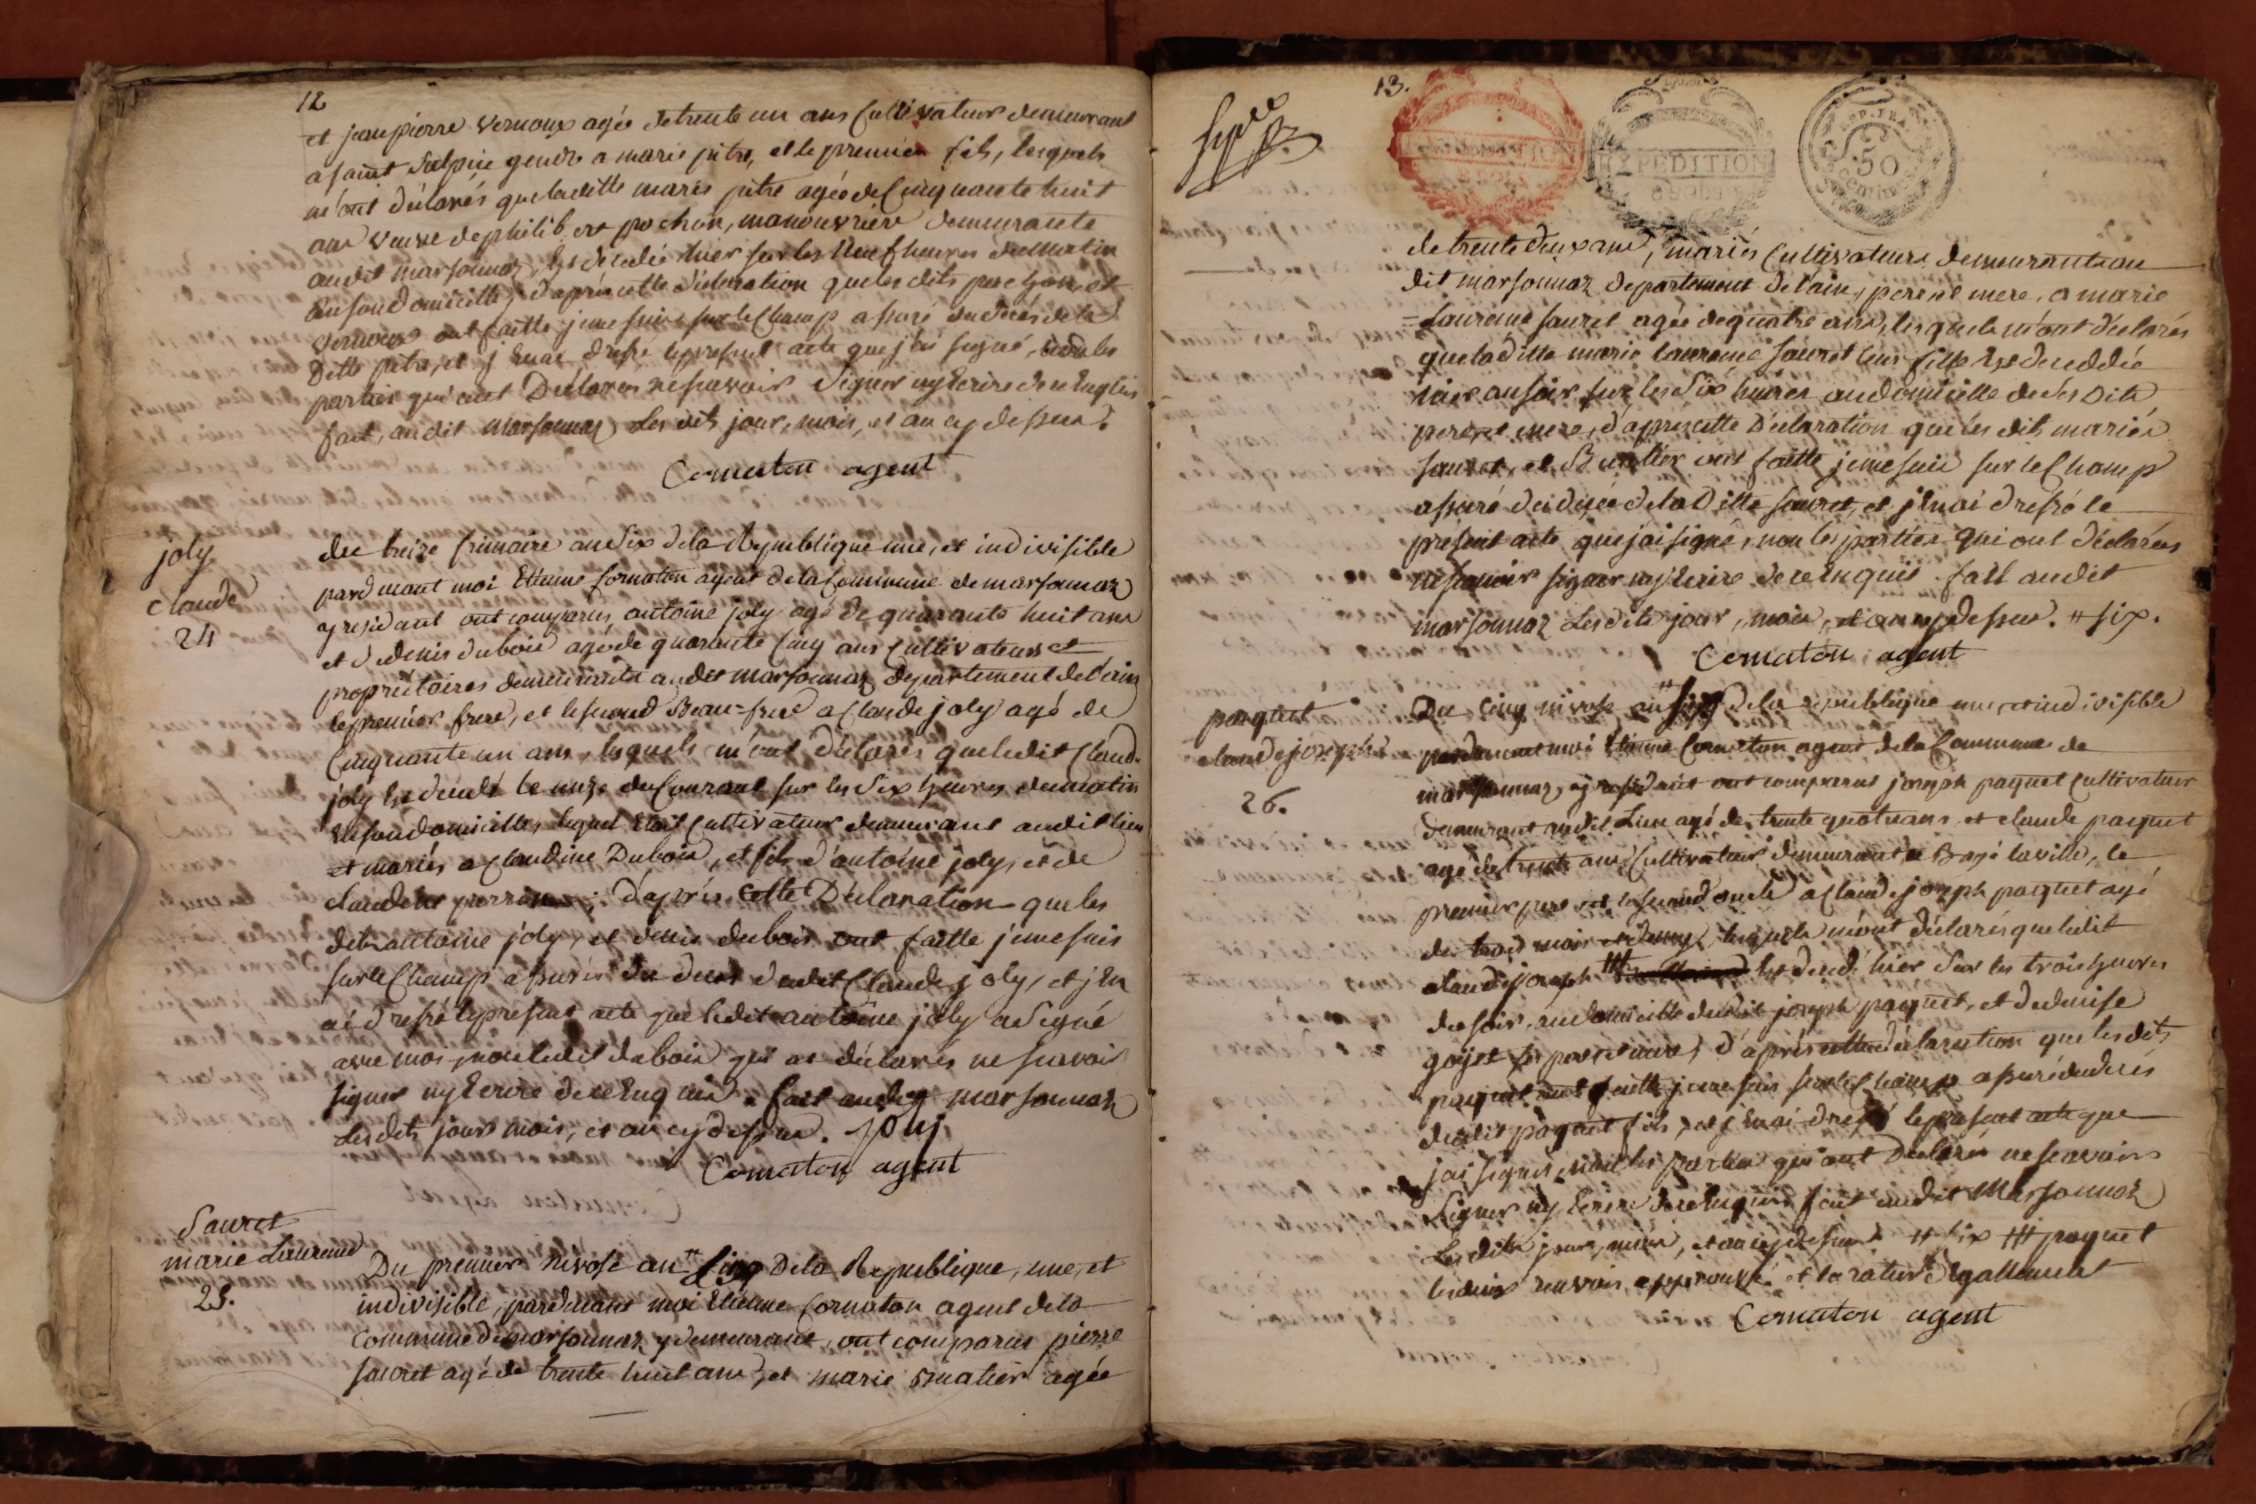 12
et jean pierre vernoux agée de trente un ans Cultivateur demeurant
a saint Sulpice gendre a marie pitre, et le premier fils, lesquels
m'ont déclarés que laditte marie pitre agée de Cinquante huit
ans veuve de philibert pochon, manouvriére demeurante
audit marsonnaz, Est decedée hier sur les Neuf heures du matin
en son domicille, d'aprés cette déclaration que les dits pochon et
vernoux ont faitte je me suis sur le Champ assuré du décés de la
ditte pitre, et j'Enai dressé le present acte que j'ai signé, non les
parties qui ont Déclarés ne savoir Signer ny Ecrire de ce Enquis
fait, audit Marsonnaz Les dits jour, mois, et an cy dessus.
Cornaton agent
joly
Claude
24
du treize frimaire an Six de la Republique une, et indivisible
pardevant moi Etienne Cornaton agent de la Commune de marsonnaz
y residant ont comparus antoine joly agé de quarante huit ans
et de denis dubois agé de quarante Cinq ans Cultivateurs et
propriétaires demeurants audit marsonnaz departement de l'ain
le premier frere, et le second Beau-frere a Claude joly agé de
Cinquante un ans, lesquels m'ont déclarés que ledit Claude
joly Est décedé le onze du Courant sur les Six heures du matin
En son domicille, lequel Etoit Cultivateur demeurant audit lieu
et mariés a Claudine Dubois, et fils d'antoine joly, et de
claudine perron; d'aprés Cette Déclaration que les
dits antoine joly, et denis dubois ont faitte je me suis
sur le Champ assurés du décés dudit Claude joly, et j'En
ai dressé le present acte que ledit antoine joly a Signé
avec moi, non ledit dubois qui a déclarés ne scavoir
signer ny Ecrire de ce Enquis. fait audit marsonnaz
Les dits jour mois, et an cy dessus. joly
Cornaton agent
Sauret
marie Laurence
25.
Du premier Nivose an # Cinq De la Republique, une, et
indivisible, pardevant moi Etienne Cornaton agent de la
Commune de marsonnaz y demeurant, ont comparus pierre
sauret agé de trente huit ans, et marie Buatier agée
13.
EXPEDITION
REP. FRA.
50
centimes
de trente deux ans, mariés Cultivateurs demeurants au
dit marsonnaz departement de l'ain, pere et mere, a marie
= Laurence sauret agée de quatre ans, lesquels m'ont déclarés
que laditte marie laurence sauret leur fille Est decedée
hier au soir sur les Six heures au domicille de ses dits
pere et mere, d'aprés cette Déclaration que les dits mariés
sauret, et Buatier ont faitte je me suis sur le Champ
assuré du décés de la Ditte sauret, et j'Enai dressé le
present acte que j'ai signé, non les parties qui ont déclarés
ne scavoir signer ny Ecrire de ce Enquis. fait audit
marsonnaz Les dits jour, mois, et an cy dessus. # six.
Cornaton agent
paquet
claude joseph
26.
Du Cinq nivose an # De la republique une, et indivisible
pardevant moi Etienne Cornaton agent de la Commune de
marsonnaz, y residant ont comparus joseph paquet Cultivateur
demeurant audit Lieu agé de trente quatre ans et claude paquet
agé de trente ans Cultivateur demeurant a Bagé la ville, le
premier pere, et le second oncle a Claude joseph paquet agé
de trois mois, lesquels m'ont déclarés que ledit
claude joseph ### Est décedé hier Sur les trois heures
du soir, au domicille dudit joseph paquet, et de denise
goyet ses pere et mere, d'aprés cette déclaration que les dits
paquet ont faitte je me suis sur le Champ assuré du décés
dudit paquet fils, et j'Enai dressé le present acte que
j'ai signé, non les parties qui ont Déclarés ne scavoir
Signer ny Ecrire de ce Enquis fait audit Marsonnaz
Les dits jour, mois, et an cy dessus # six ### paquet
les deux renvois approuvés et la rature Egallement
Cornaton agent